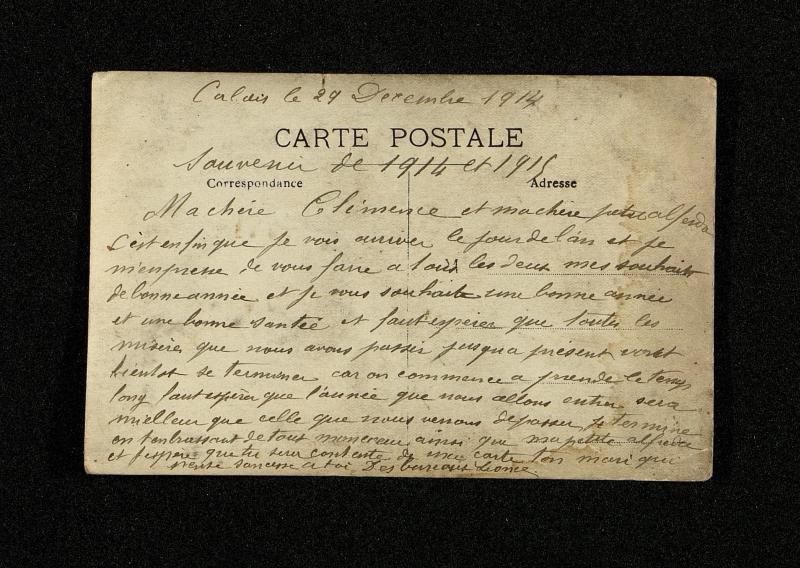 Calais le 29 Decembre 1914
CARTE POSTALE
Souvenir de 1914 et 1915
Correspondance
Adresse
Machère Clémence et machère petite
C'est enfin que je vois arriver le jour de l'an et je
m'empresse de vous faire a tous les deux mes souhaits
de bonne année et je vous souhaite une bonne année
et une bonne santée et faut espérer que toutes les
misères que nous avons passer jusqua présent vont
bientot se terminer car on commence a prende le temp
long faut espérer que l'année que nous allons entrer sera
meilleur que celle que nous venons de passer je termine
en t'enbrassant de tout moncoeur ainsi que ma petite
et j'espère que tu sera contente de ma carte ton mari qui
pense sancesse a toi Léonce